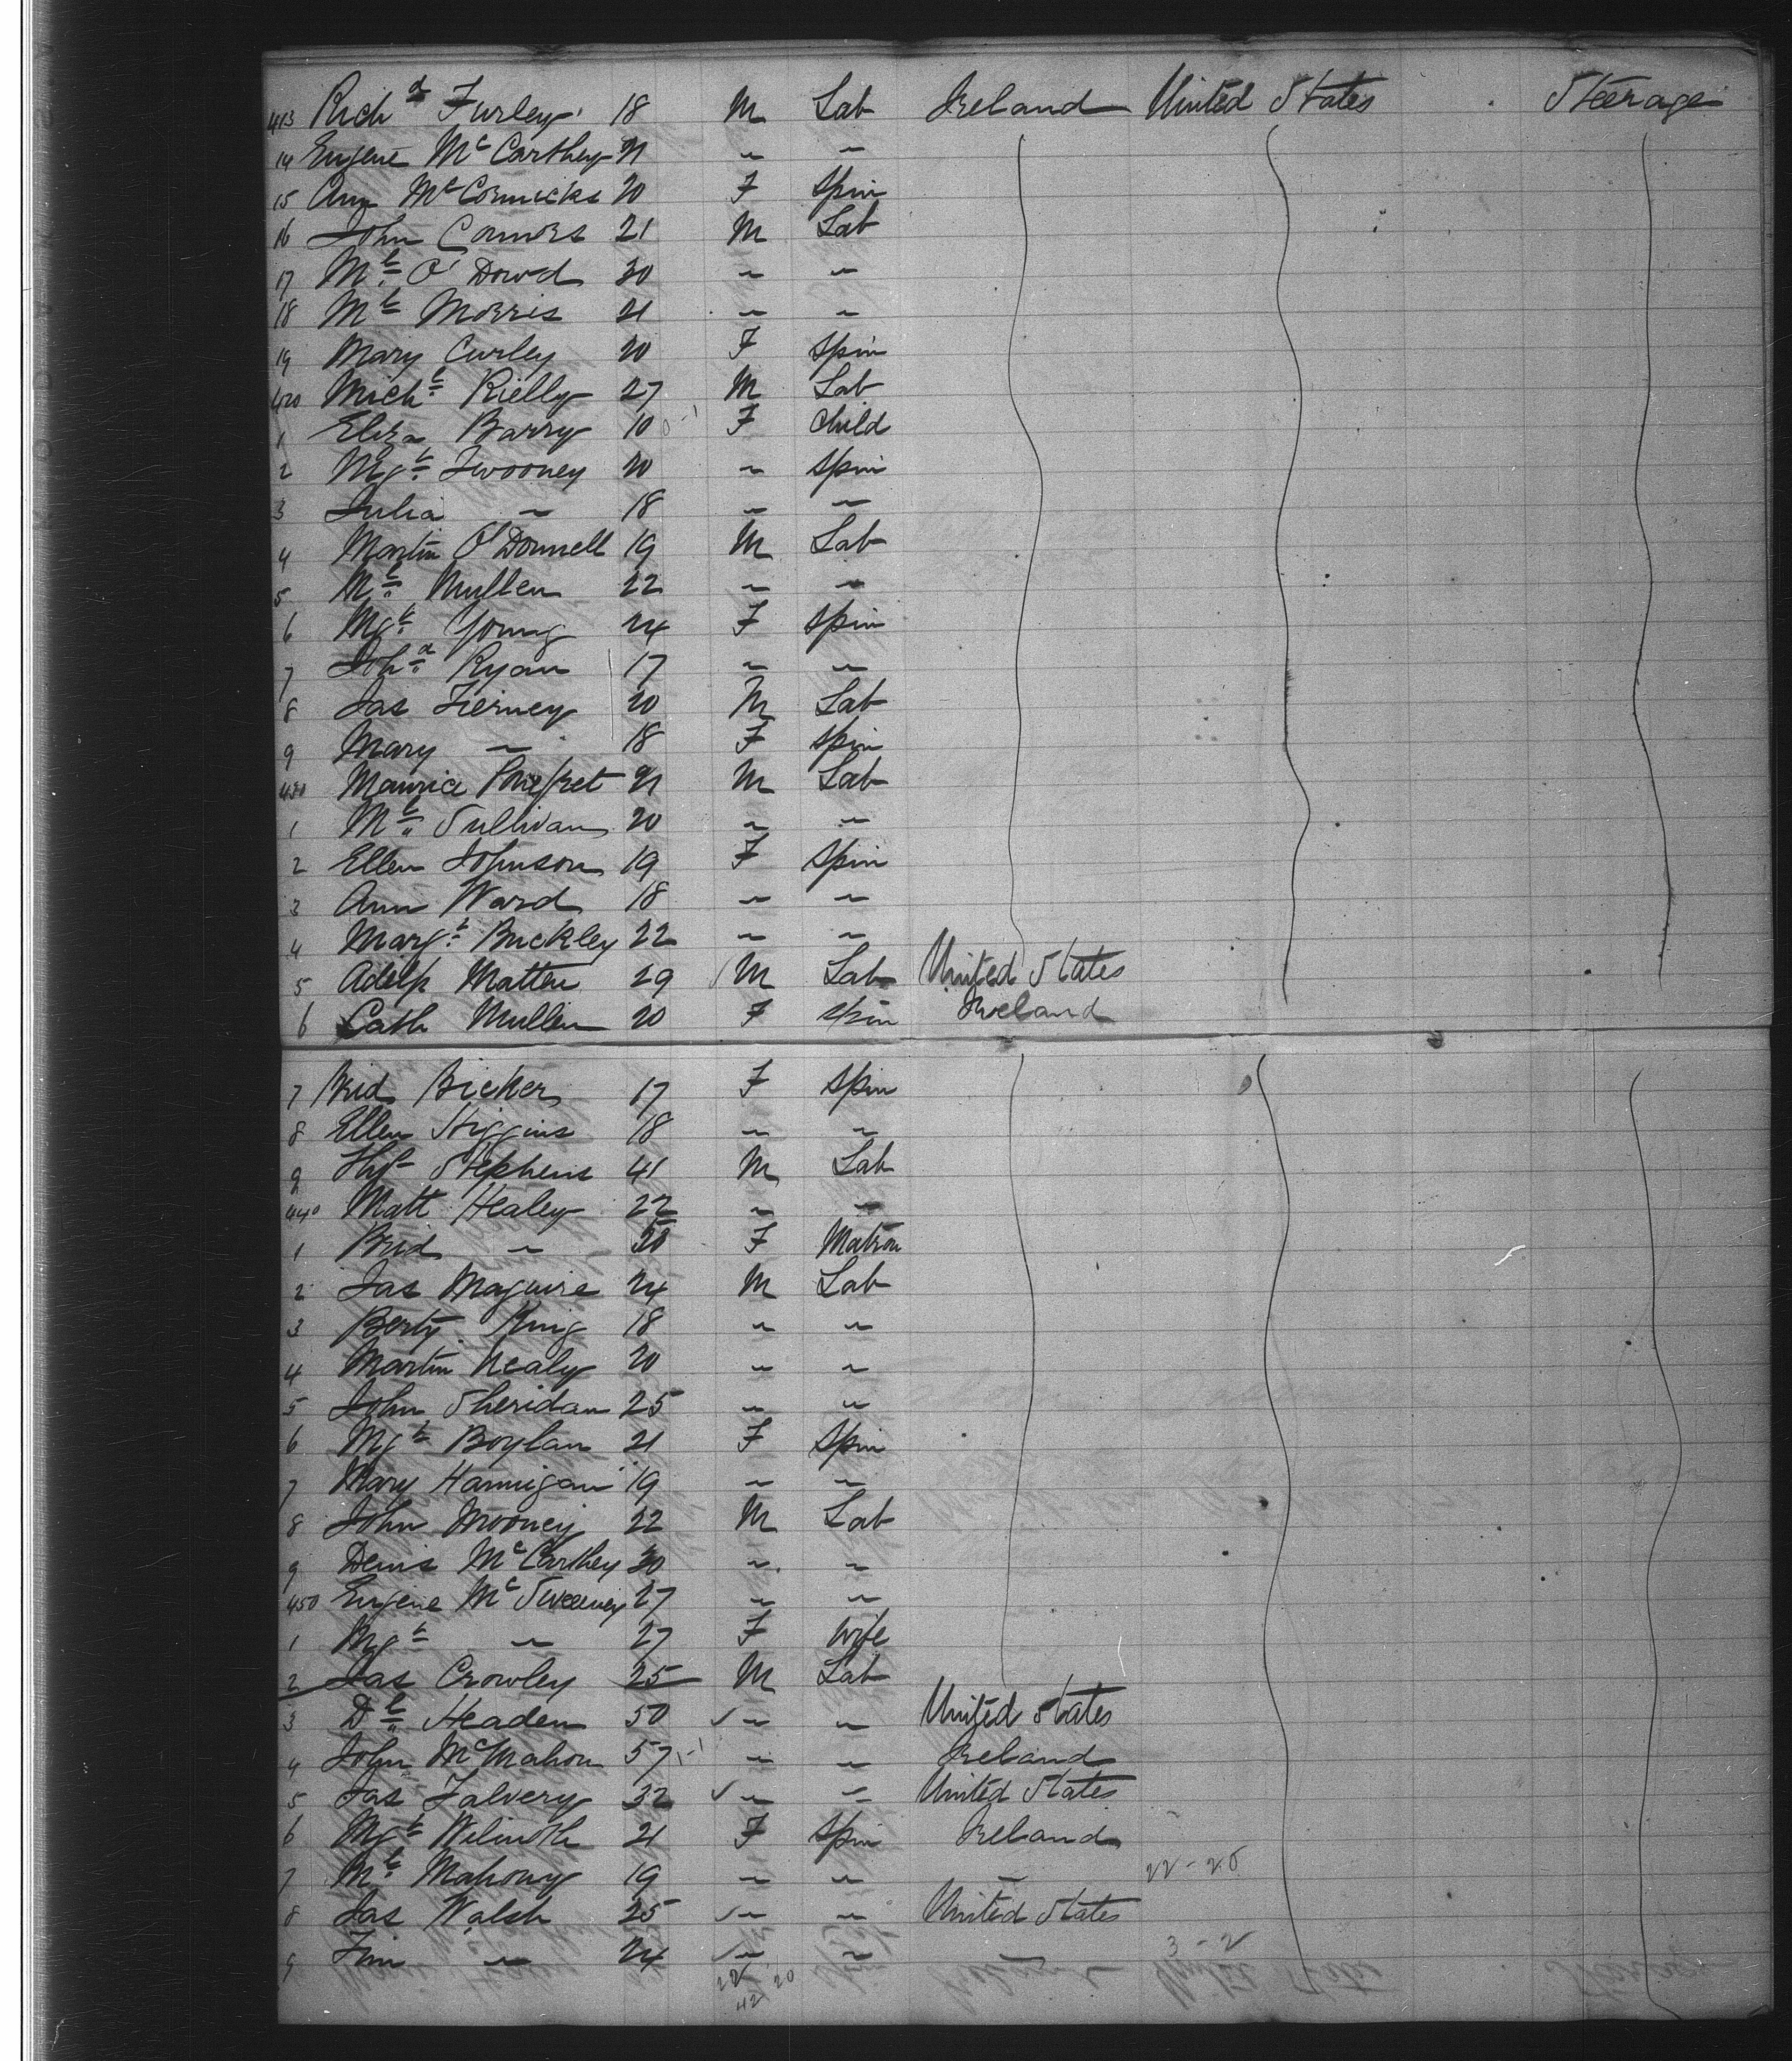 413 Richd Furley 18 M Lab Ireland United States Steerage
14 Eugene McCarthey 21 " "
15 Ann McCormicks 20 F Spin
16 John Connors 21 M Lab
17 Mt O'Dowd 30 " "
18 Mt Morris 21 " "
19 Mary Curley 20 F Spin
420 Michl Rielly 27 M Lab
1 Eliza Barry 10 F Child
2 Mgt Twooney 20 " Spin
3 Julia " 18 " "
4 Martin O'Donnell 19 M Lab
5 Mt Mullen 22 " "
6 Mgt Young 24 F Spin
7 Joha Ryan 17 " "
8 Jas Tierney 20 M Lab
9 Mary " 18 F Spin
430 Maurice 21 M Lab
1 Mt Sullivan 20 " "
2 Ellen Johnson 19 F Spin
3 Ann Ward 18 " "
4 Margt Buckley 22 " "
5 Adolp Matten 29 M Lab United States
6 Cath Mullen 20 F Spin Ireland
7 Brid 17 F Spin
8 Ellen Higgins 18 " "
9 Stephens 41 M Lab
440 Matt Healey 22 " "
1 Brid " 50 F Matron
2 Jas Maguire 24 M Lab
3 Berty King 18 " "
4 Martin Nealy 20 " "
5 John Sheridan 25 " "
6 Mgt Boylan 21 F Spin
7 Mary Hannigan 19 " "
8 John Mooney 22 M Lab
9 Denis McCarthey 30 " "
450 Eugene McSweeney 27 " "
1 Mgt " 27 F Wife
2 Jas Crowley 25 M Lab
3 Dl Headen 50 " " United States
4 John McMahon 57 " " Ireland
5 Jas Falvery 32 " " United States
6 Mgt 21 F Spin Ireland
7 Mt Mahony 19 " " "
8 Jas Walsh 25 " " United States
9 Tim " 24 " " " 3-2
22 20
42